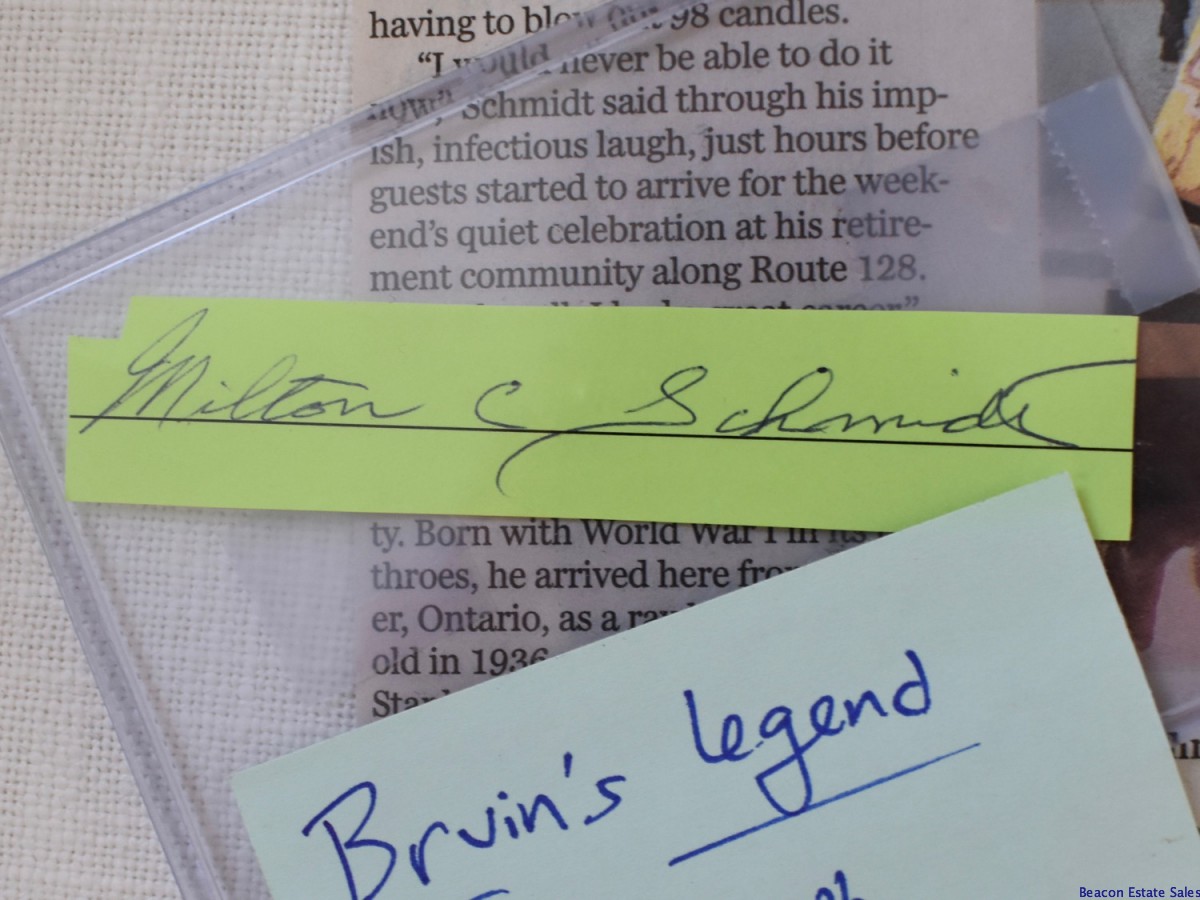 having to blow out 98 candles.
“I would never be able to do it
now,” Schmidt said through his imp-
ish, infectious laugh, just hours before
guests started to arrive for the week-
end’s quiet celebration at his retire-
ment community along Route 128.
great career”
Milton C Schmidt
ty. Born with World War I in its
throes, he arrived here from
er, Ontario, as a
old in 1936
Bruin's legend
Beacon Estate Sales